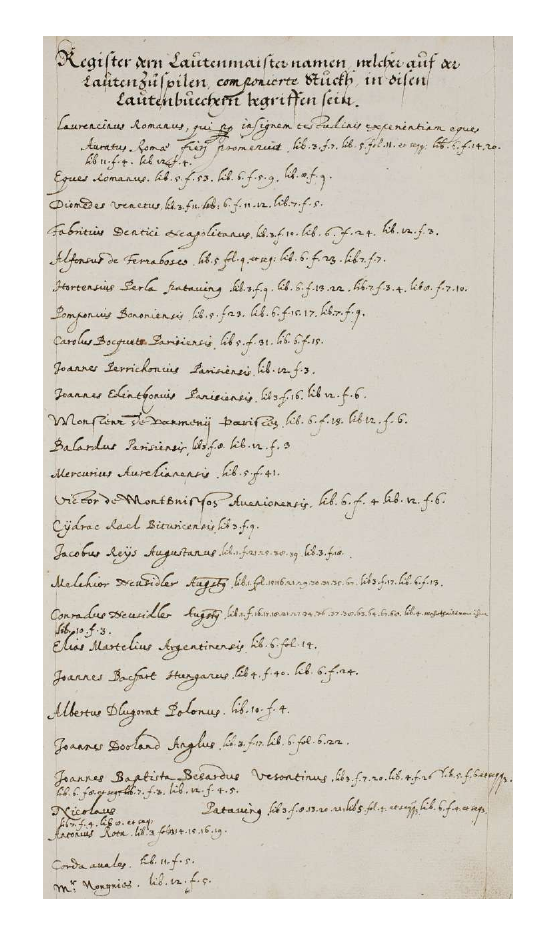 Register dern Lautenmaister namen, welcher auf der
Lauten Zuspilen, componierte Stuckh, in disen
Lautenbuechern begriffen sein.
Laurencinus Romanus, qui insignem testudinis experientiam eques
Auratus Romæ fieri promeruit. lib. 3. f. 7. lib. 5. fol. 11. et seq. lib. 6. f. 14. 20.
lib 11. f. 4. lib 12. f. 4.
Eques Romanus. lib. 5. f. 53. lib. 6. f. 5. 9. f. 9.
Diomedes Venetus, lib. 6. f. 11. 12. lib. 7. f. 5.
Fabritius Dentici Neapolitanus, lib. 6. f. 24. lib. 12. f. 3.
Alfonsus de Ferrabosco. lib. 5 fol. 9. et seq. lib. 6. f. 23. lib. 7. f. 7.
Hortensius Perla Pataving lib. 3. f. 9. lib. 6. f. 13. 22. lib. 7. f. 3. 4. f. 7. 10.
Pomponius Bononiensis lib. 5. f. 23. lib. 6. f. 15. 17. lib. 7. f. 9.
Carolus Bocquet Parisiensis lib. 5. f. 31. lib. 6. f. 15.
Joannes Perrichonius Parisiensis lib. 12. f. 3.
Joannes Edinthonius Parisiensis lib. 3. f. 16. lib 12. f. 6.
Monsieur de Vaumenij lib. 6. f. 18. lib 12. f. 6.
Balardus Parisiensis lib. 12. f. 3
Mercurius Aurelianensis lib. 5. f. 41.
Victor de Montbuisson Avenionensis, lib. 6. f. 4 lib. 12. f. 6.
Cydrac Rael Bituricensis lib. 3. f. 9.
Jacobus Reijs Augustanus lib. 3. f. 18.
Melchior Neusidler Augstg lib. 3 f. 17. lib. 6. f. 13.
Conradus Neusidler Augstg
lib. 10. f. 3.
Elias Martelius Argentinensis lib. 6. fol. 14.
Joannes Bacfart Hungarus lib 4. f. 40. lib. 6. f. 24.
Albertus Dlugorai Polonus. lib. 10. f. 4.
Joannes Dooland Anglus lib. 3. f. 17. lib. 6. fol. 6. 22.
Joannes Baptista Besardus Vesontinus, lib. 3. f. 7. 20. lib. 4. f. 26 lib. 5. f. 6. et seqq.
lib. 7. f. 3. lib. 12. f. 4. 5.
Nicolaus Pataving lib. 5 fol. 4. et seqq. lib. 6. f. 4. et seqq.
lib. 7. f. 4. et seq.
Antonius Rota lib. 3 14. 15. 16. 19.
Corda avales lib. 11. f. 5.
Mr. Mongnios. lib. 12. f. 5.